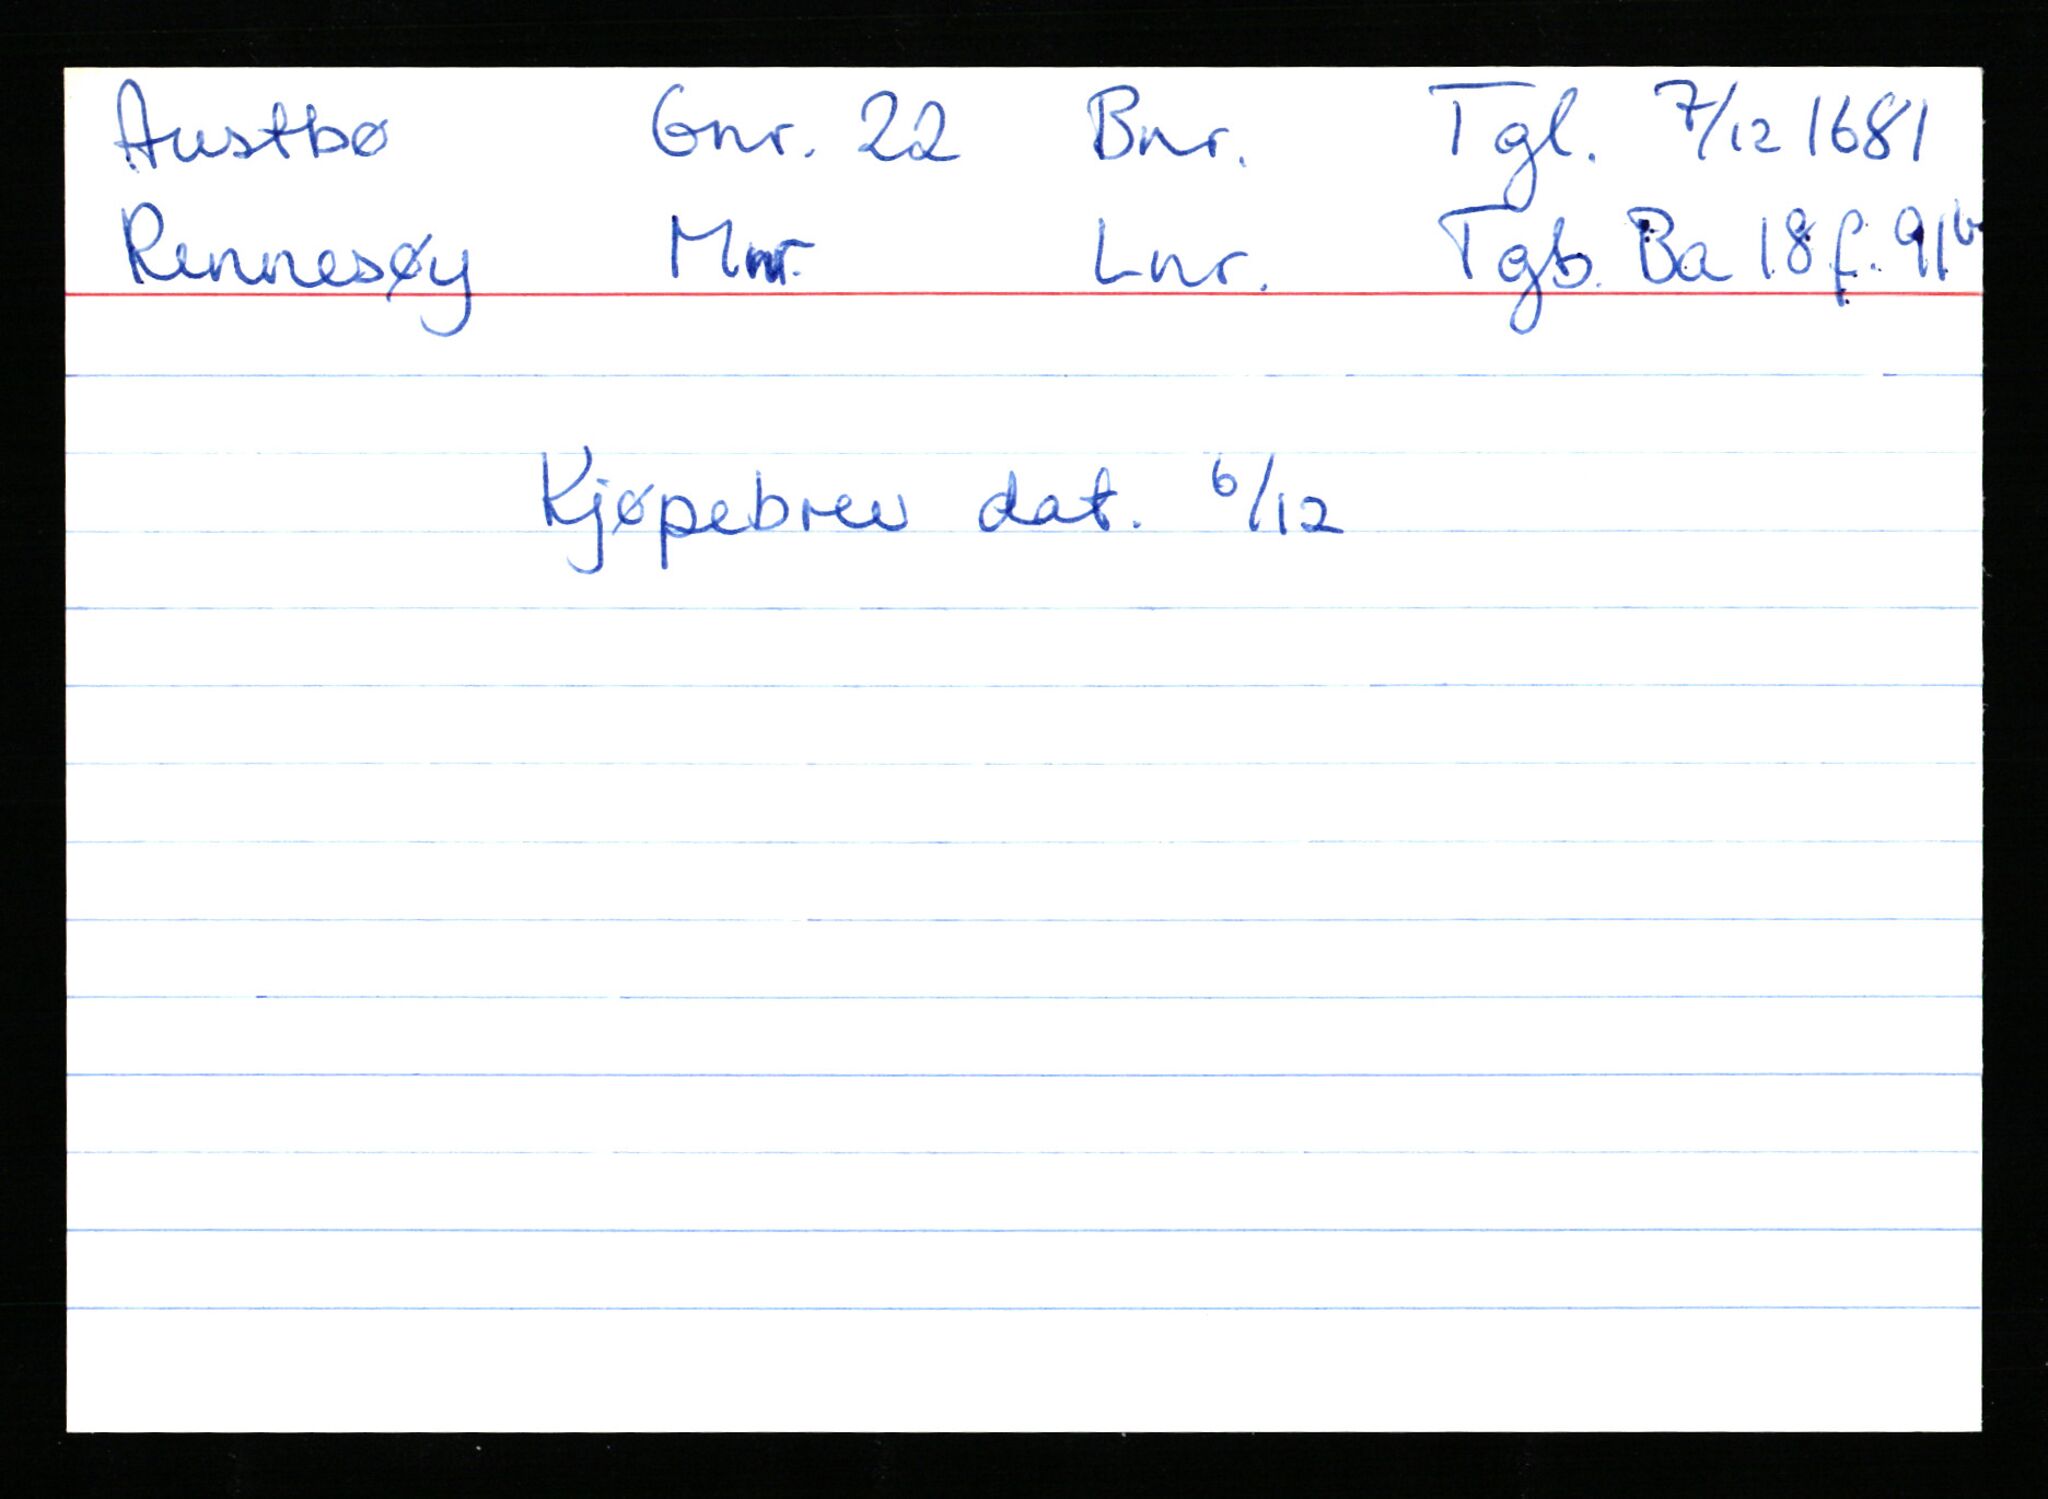 Austbø Gnr. 22 Bnr. Tgl. 7/12 1681
Rennesøy Mnr. Lnr. Tgb. Ba 18 f. 91b
Kjøpebrev dat. 6/12